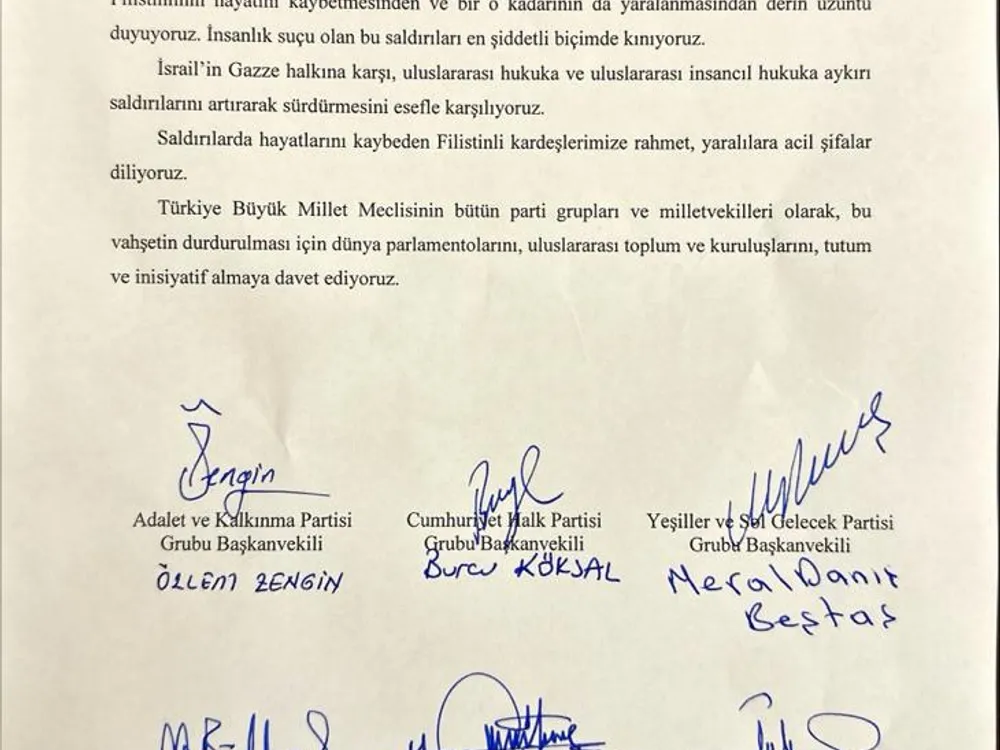 hayatını kaybetmesinden ve bir o kadarının da yaralanmasından derin üzüntü
duyuyoruz. İnsanlık suçu olan bu saldırıları en şiddetli biçimde kınıyoruz.
İsrail'in Gazze halkına karşı, uluslararası hukuka ve uluslararası insancıl hukuka aykırı
saldırılarını artırarak sürdürmesini esefle karşılıyoruz.
Saldırılarda hayatlarını kaybeden Filistinli kardeşlerimize rahmet, yaralılara acil şifalar
diliyoruz.
Türkiye Büyük Millet Meclisinin bütün parti grupları ve milletvekilleri olarak, bu
vahşetin durdurulması için dünya parlamentolarını, uluslararası toplum ve kuruluşlarını, tutum
ve inisiyatif almaya davet ediyoruz.
Adalet ve Kalkınma Partisi Cumhuriyet Halk Partisi Yeşiller ve Sol Gelecek Partisi
Grubu Başkanvekili Grubu Başkanvekili Grubu Başkanvekili
ÖZLEM ZENGİN Burcu KÖKSAL Meral Danış
Beştaş